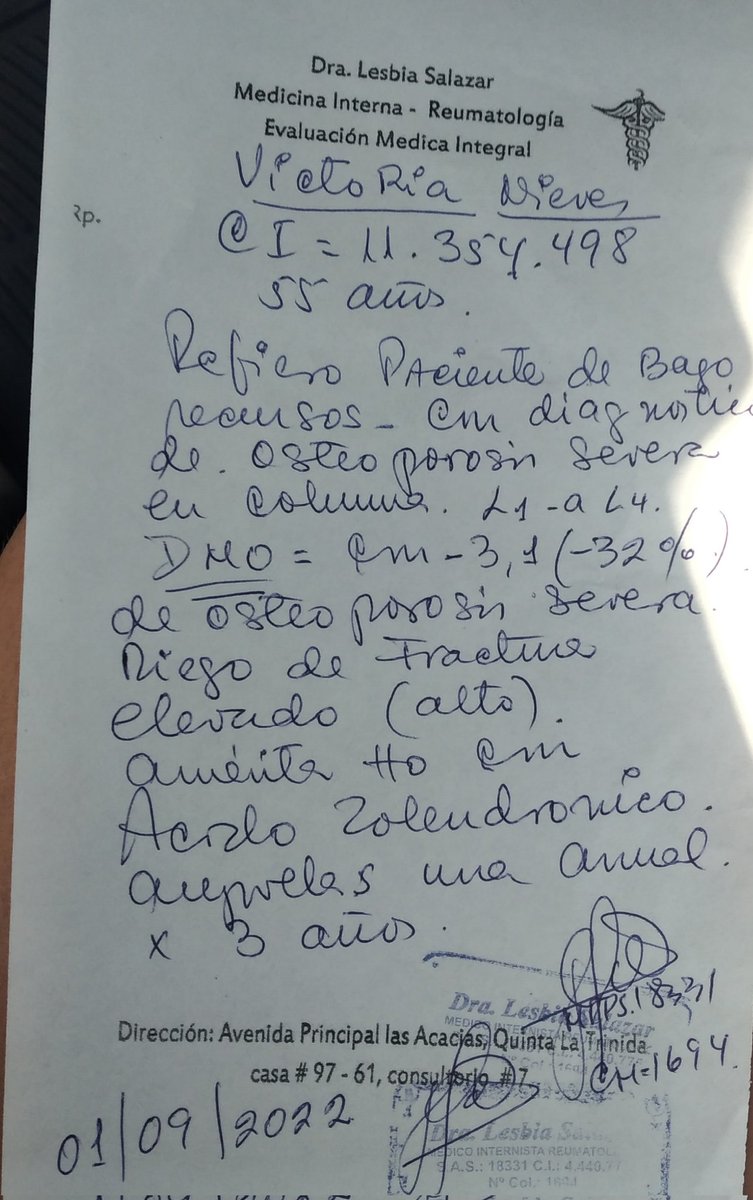 Dra. Lesbia Salazar
Medicina Interna - Reumatología
Evaluación Medica Integral
Rp.
Victoria Nieves
CI = 11.354.498
55 años.
Refiero Paciente de Bago
recursos - con diagnostico
de. osteoporosis severa
en columna. L1 - a L4.
DMO = con -3,1 (-32%)
de osteoporosis severa.
Riego de Fractura
elevado (alto).
amérita tto con
Acido Zolendronico.
ampollas una anual.
x 3 años.
Dra. Lesbia Salazar
MPPS. 18331
Dirección: Avenida Principal las Acacias, Quinta La Trinida
CM = 1694.
casa # 97 - 61, consultorio #7
01/09/2022
Dra. Lesbia
MEDICO INTERNISTA REUMATOL
S.A.S.: 18331 C.I.: 4.440.77
Nº Col.: 1694